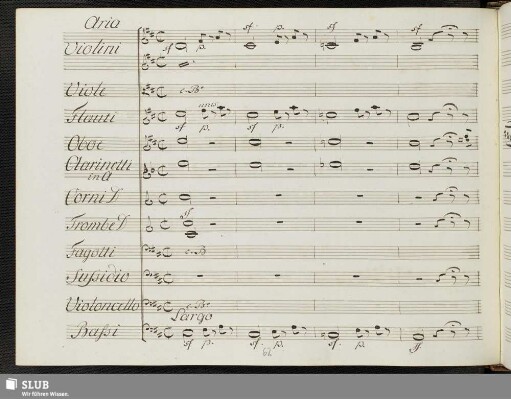 Aria
Violini
sf p. sf. p. sf sf
Viole
c. B°
Flauti
unis
sf p. sf p.
Oboe
Clarinetti
in A
Corni
Trombe
sf
Fagotti
c. B
Sufsidio
Violoncello
c. B°
Largo
Bassi
sf p. sf. p. sf. p. sf.
SLUB
Wir führen Wissen.